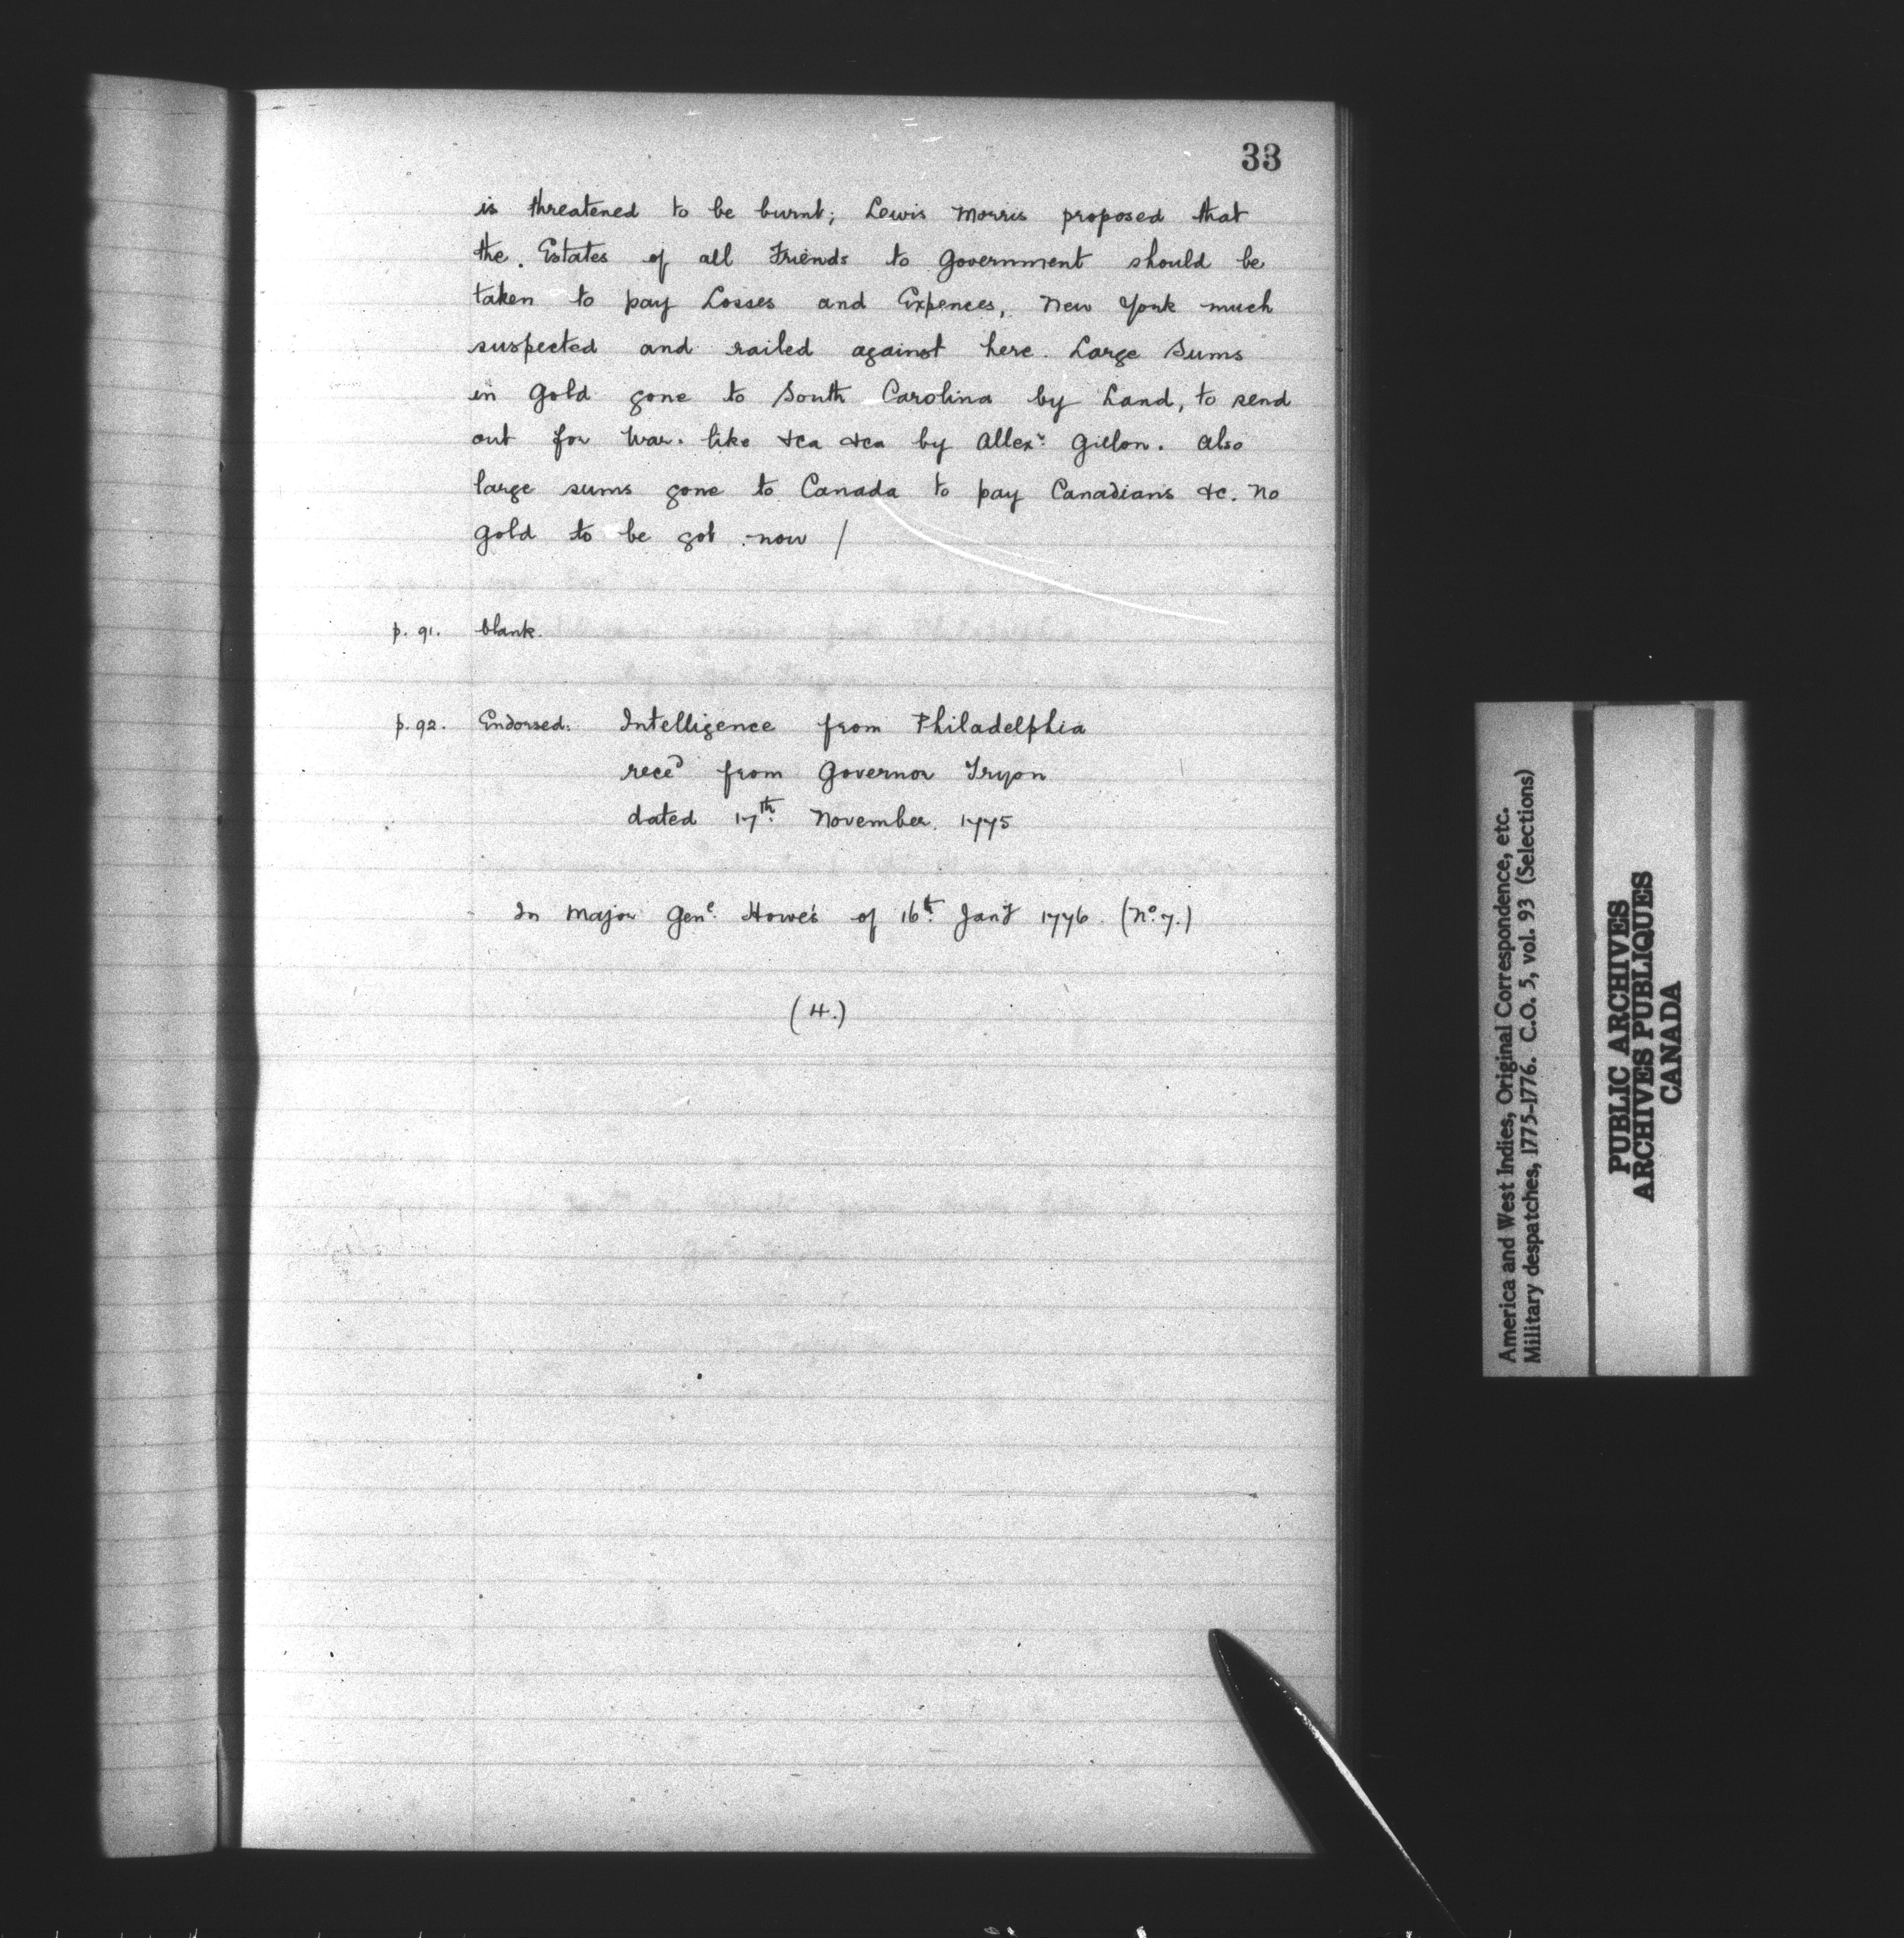 33
is threatened to be burnt; Lewis Morris proposed that
the. Estates of all Friends to Government should be
taken to pay Losses and Expences, New York much
suspected and railed against here. Large Sums
in Gold gone to South Carolina by Land, to send
out for War. like &ca &ca by Allexr. Gillon. Also
large sums gone to Canada to pay Canadians &c. No
Gold to be got now /
p. 91. blank.
p. 92. Endorsed: Intelligence from Philadelphia
reced from Governor Tryon
dated 17th. November. 1775
In Major Genl. Howe's of 16th. Jany 1776. (No. 7.)
(4.)
America and West Indies, Original Correspondence, etc.
Military despatches, 1775-1776. C.O. 5, vol. 93 (Selections)
PUBLIC ARCHIVES
ARCHIVES PUBLIQUES
CANADA